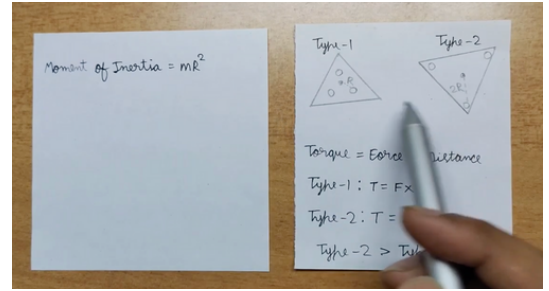 Moment of Inertia = mR²
Type-1
Type-2
R
2R
Torque = Force Distance
Type-1 : T = Fx
Type-2 : T =
Type-2 >